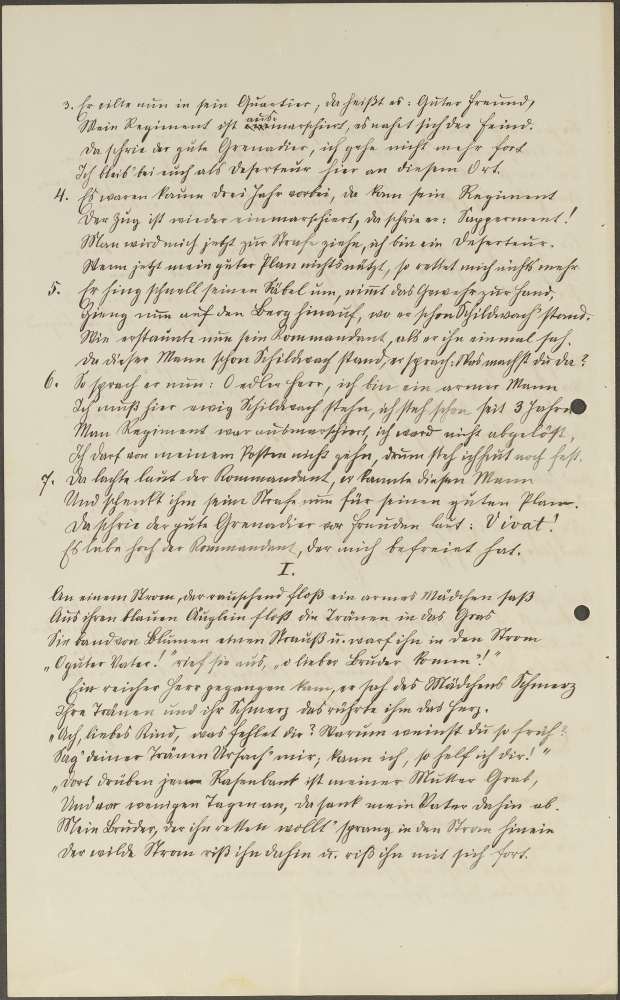 3. Er eilte nun in sein Quartier, da heißt es: Guter Freund,
Mein Regiment ist aus-marschiert, es naht sich der Feind.
Da schrie der gute Grenadier, ich gehe nicht mehr fort
Ich bleib' bei euch als Deserteur hier an diesem Ort.
4. Es waren kaum drei Jahr vorbei, da kam sein Regiment
Der Zug ist wieder einmarschiert, da schrie er: Sapperment!
Man wird mich jetzt zur Strafe ziehn, ich bin ein Deserteur.
Wenn jetzt mein guter Plan nichts nützt, so rettet mich nichts mehr
5. Er hing schnell seinen Säbel um, nimt das Gewehr zur Hand,
Gieng nun auf den Berg hinauf, wo er schon Schildwach' stand.
Wie erstaunte nun sein Kommandant, als er ihn einmal sah.
Da dieser Mann schon Schildwach stand, er sprach: Was machst du da?
6. So sprach er nun: O edler Herr, ich bin ein armer Mann
Ich muß hier ewig Schildwach stehn, ich steh schon seit 3 Jahren
Mein Regiment war ausmarschiert, ich ward nicht abgelöst,
Ich darf von meinem Posten nicht gehn, drum steh ich heut noch fest.
7. Da lachte laut der Kommandant, er kannte diesen Mann
Und schenkt ihm seine Strafe nun für seinen guten Plan.
Da schrie der gute Grenadier vor Freuden laut: Vivat!
Es lebe hoch der Kommandant, der mich befreiet hat.
I.
An einem Strom, der rauschend floß ein armes Mädchen saß
Aus ihren blauen Äuglein floß die Tränen in das Gras
Sie band von Blumen einen Strauß u. warf ihn in den Strom
„O guter Vater!" rief sie aus, „o lieber Bruder komm"!"
Ein reicher Herr gegangen kam, er sah des Mädchens Schmerz
Ihre Tränen und ihr Schmerz das rührte ihm das Herz.
„Ach, liebes Kind, was fehlet dir? Warum weinst du so früh?
Sag' deiner Tränen Ursach' mir; kann ich, so helf ich dir!"
„Dort drüben jene Rasenbank ist meiner Mutter Grab,
Und vor wenigen Tagen an, da sank mein Vater dahin ab.
Mein Bruder, der ihn retten wollt' sprang in den Strom hinein
Der wilde Strom riß ihn dahin u. riß ihn mit sich fort.